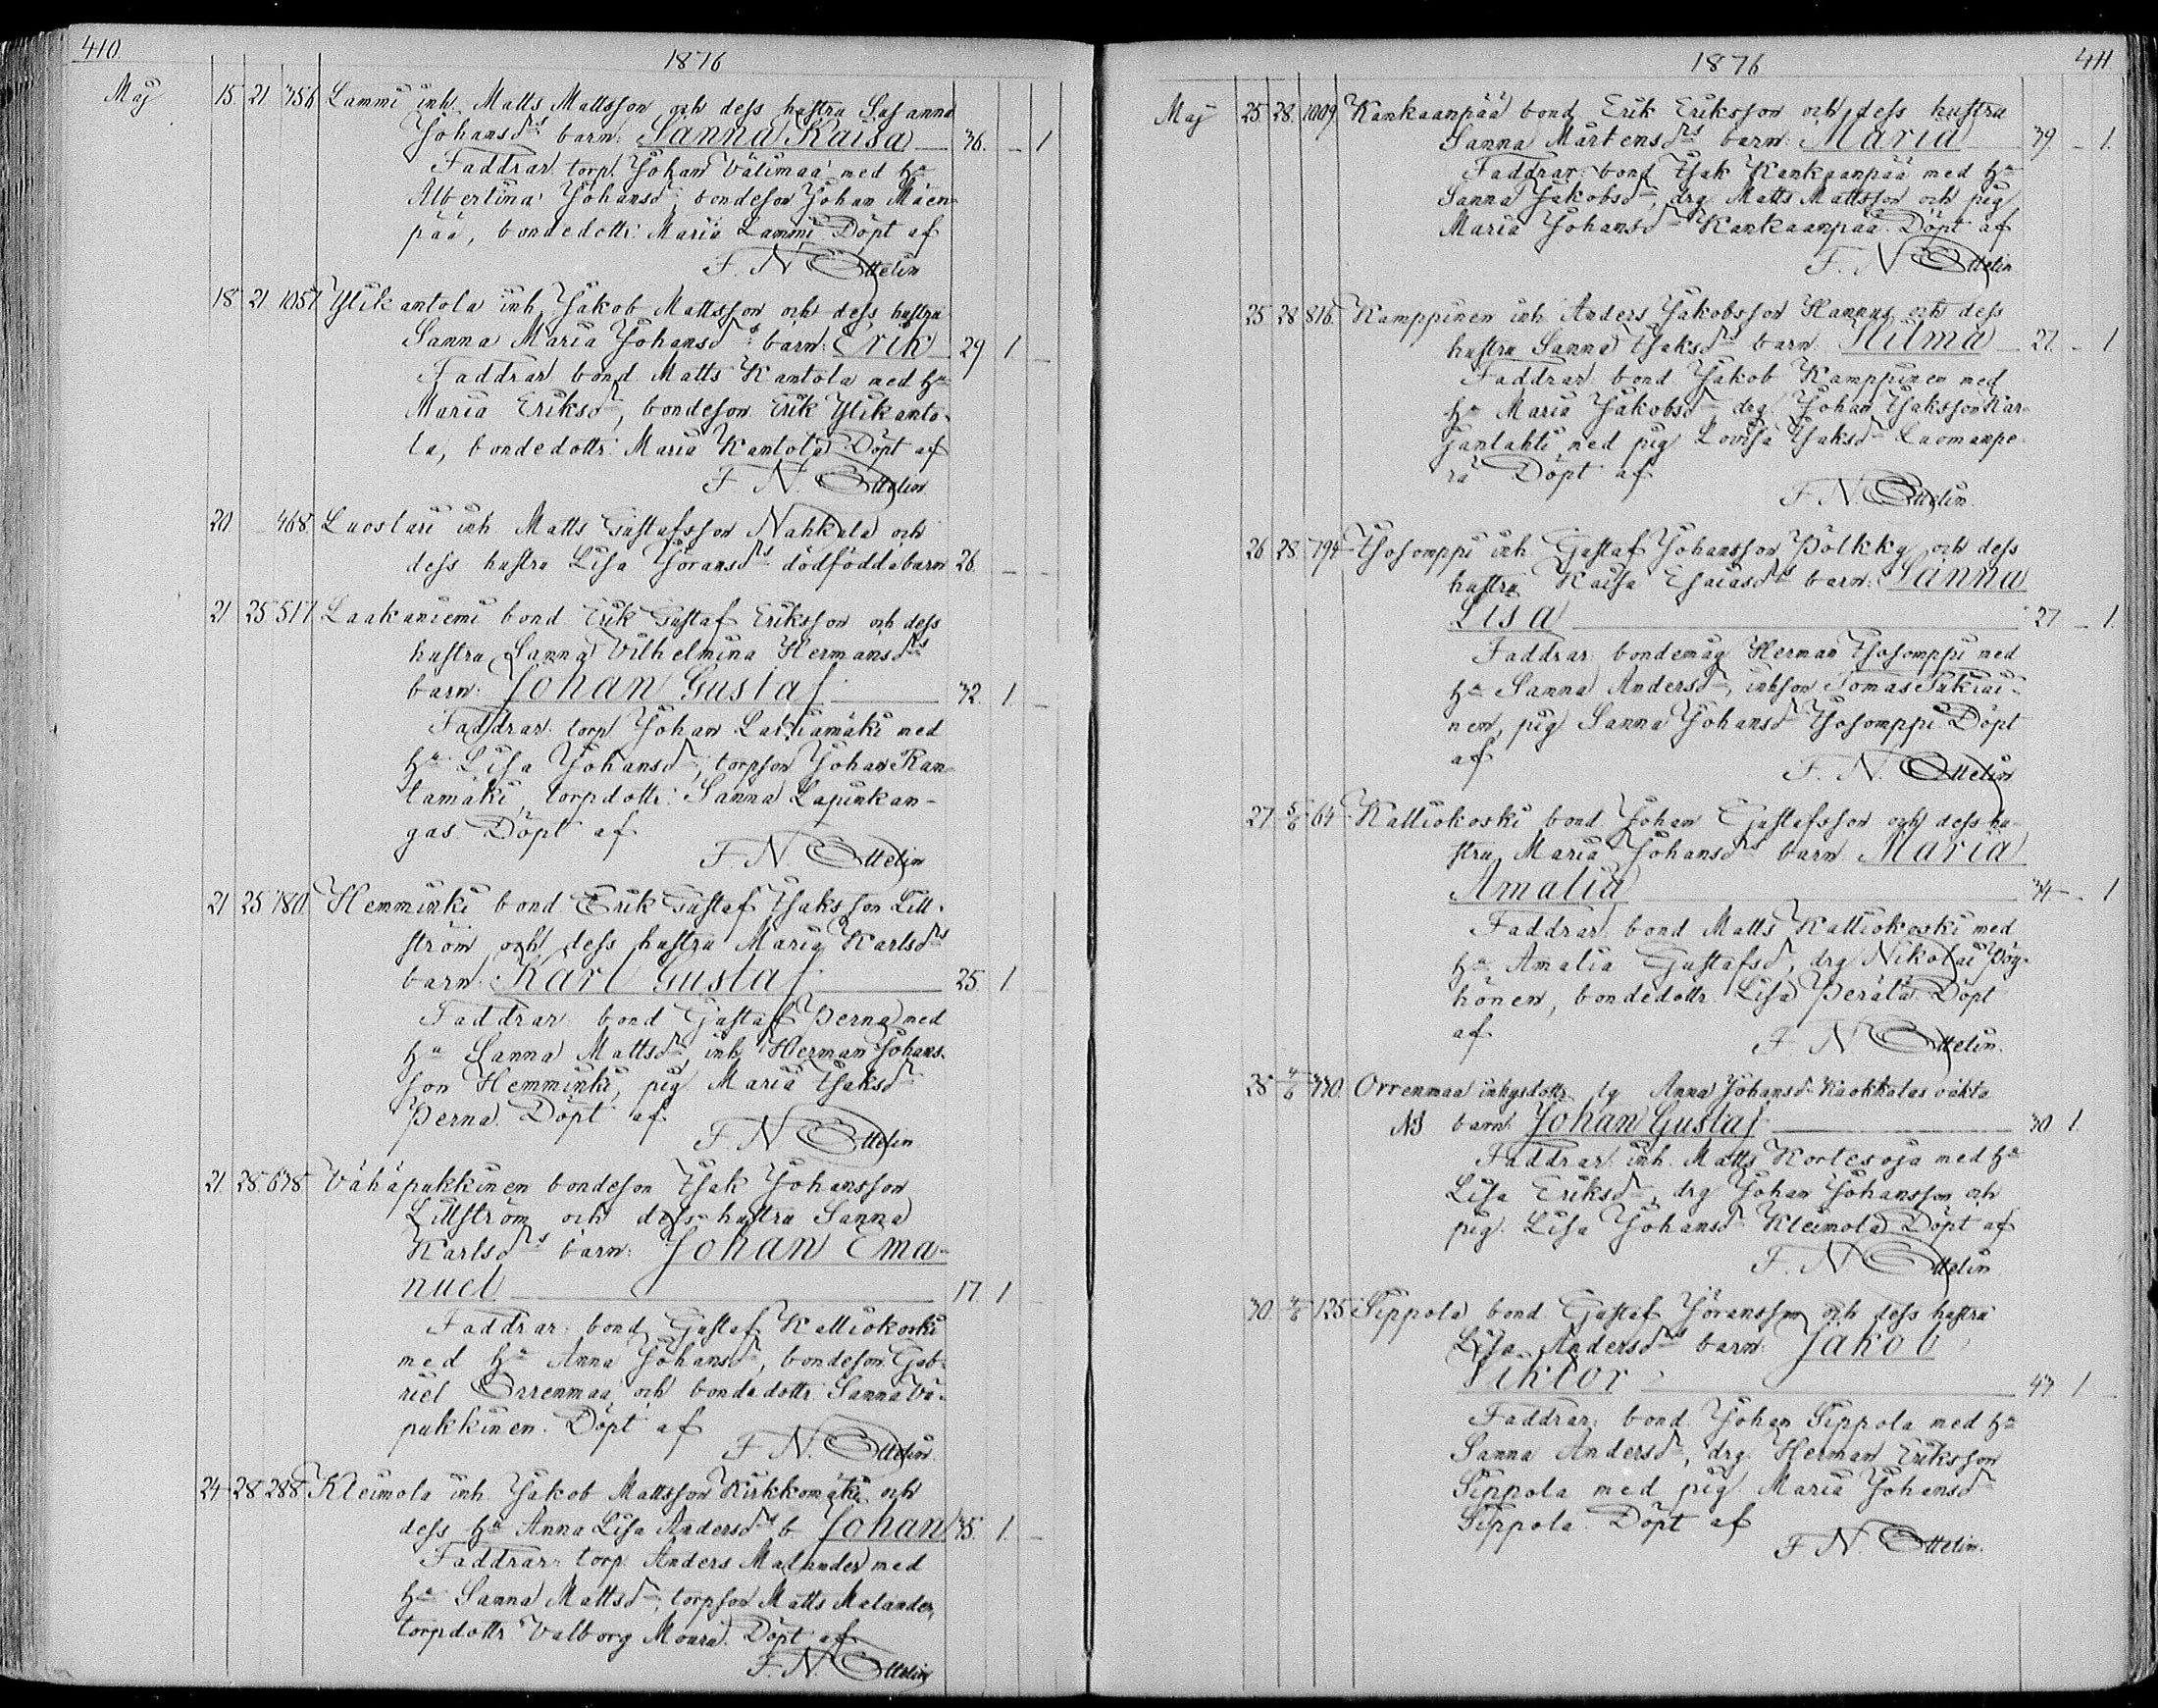 410.
1876
Maj 15. 21. 756. Lammi inh. Matts Mattsson och dess hustru Susanna
Johansdrs barn: Sanna Kaisa 36. – 1
Faddrar: torp. Johan Välimaa med hu
Albertina Johansdr, bondeson Johan Mäen-
pää, bondedottr: Maria Lammi. Döpt af
F. N. Ottelin
18 21 1057 Ylikantola inh. Jakob Mattsson och dess hustru
Sanna Maria Johansdrs barn: Erik 29 1 –
Faddrar: bond. Matts Kantola med hu
Maria Eriksdr, bondeson Erik Ylikanto-
la, bondedottr: Maria Kantola. Döpt af
F. N. Ottelin.
20 468. Luostari inh. Matts Gustafsson Nahkala och
dess hustru Lisa Göransdrs dödfödda barn 26. – –
21 25 517. Laakaniemi bond. Erik Gustaf Eriksson och dess
hustru Sanna Vilhelmina Hermansdrs
barn: Johan Gustaf 32. 1. –
Faddrar: torp. Johan Lashamäki med
hu Lisa Johansdr, torpson Johan Ran-
tamäki, torpdottr: Sanna Lapinkan-
gas. Döpt af
F. N. Ottelin
21 25 780. Hemminki bond. Erik Gustaf Isaksson Litt-
ström och dess hustru Maria Karlsdrs
barn: Karl Gustaf 25. 1
Faddrar: bond. Gustaf Perna med
hu Sanna Mattsdr, inh. Herman Johans-
son Hemminki, pig. Maria Isaksdr
Perna. Döpt af
F. N. Ottelin
21. 28. 678. Vähäpukkinen bondeson Isak Johansson
Littström och dess hustru Sanna
Karlsdrs barn: Johan Ema-
nuel 17. 1
Faddrar: bond. Gustaf Kattiokoski
med hu Anna Johansdr, bondeson Gab-
riel Orrenmaa och bondedottr: Sanna Vä-
pukkinen. Döpt af
F. N. Ottelin.
24 28 288 Kleimola inh. Jakob Mattsson Kirkkomäki och
dess hu Anna Lisa Andersdrs b. Johan 35. 1. –
Faddrar: torp. Anders Malander med
hu Sanna Mattsdr, torpson Matts Malander,
torpdottr: Valborg Moura. Döpt af
F. N. Ottelin
1876
411.
Maj 25 28. 1009. Kankaanpää bond. Erik Eriksson och dess hustru
Sanna Mårtensdrs barn: Maria 39. – 1.
Faddrar: bond. Isak Kankaanpää med hu
Sanna Jakobsdr, drg. Matts Mattsson och pig.
Maria Johansdr Kankaanpää. Döpt af
F. N. Ottelin
25 28 816. Kamppinen inh. Anders Jakobsson Hannus och dess
hustru Sanna Isaksdrs barn: Hilma 27. – 1
Faddrar: bond. Jakob Kamppinen med
hu Maria Jakobsdr, drg. Johan Isaksson Kar-
janlahti med pig. Lovisa Isaksdr Luomanpe-
rä. Döpt af
F. N. Ottelin.
26 28. 794 Isosomppi inh. Gustaf Johansson Pölkky och dess
hustru Kaisa Esaiasdrs barn: Sanna
Lisa 27 – 1.
Faddrar: bondemåg Herman Isosomppi med
hu Sanna Andersdr, inhson Tomas Tukiai-
nen, pig. Sanna Johansdr Isosomppi. Döpt
af
F. N. Ottelin
27. 5/6 64. Kattiokoski bond. Johan Gustafsson och dess hu-
stru Maria Johansdrs barn Maria
Amalia 34 – 1
Faddrar: bond. Matts Kattiokoski med
hu Amalia Gustafsdr, drg. Nikolai Pög-
hönen, bondedottr. Lisa Perälä. Döpt
af
F. N. Ottelin.
28 4/6 770. Orrenmaa inhysdottr lg Anna Johansdr Kaakkolas oäkta
NB barn: Johan Gustaf 30 1.
Faddrar: inh. Matts Kortesoja med hu
Lisa Eriksdr, drg. Johan Johansson och
pig. Lisa Johansdr Kleimola. Döpt af
F. N. Ottelin
30. 4/6 125. Sippola bond. Gustaf Göransson och dess hustru
Lisa Andersdrs barn: Jakob
Viktor 43 1 –
Faddrar: bond. Johan Sippola med hu
Sanna Andersdr, drg. Herman Eriksson
Sippola med pig. Maria Johansdr
Sippola. Döpt af
F. N. Ottelin.